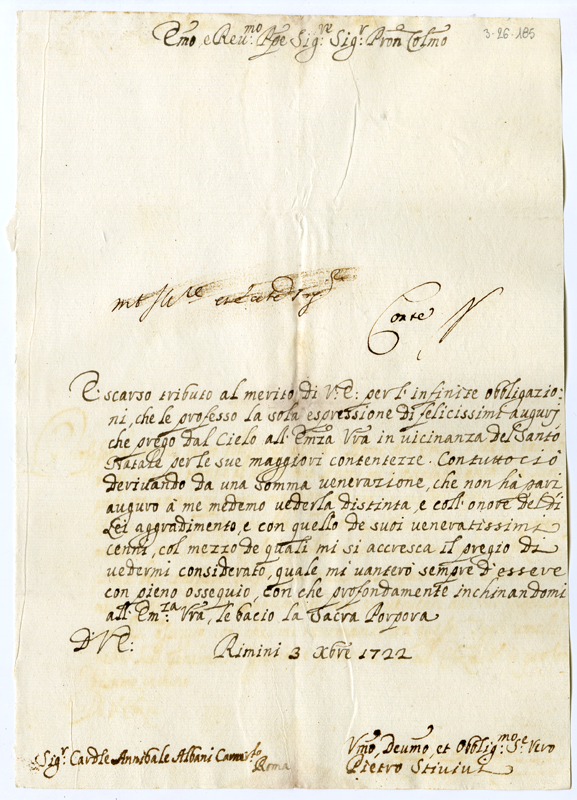 Emo, e Reu:mo Ppe Sig:re Sig:r Pron Colmo
3-26-185
Conte N
E scarso tributo al merito di V:E: per l'infinite obbligazio-
ni, che le professo la sola espressione di felicissimi augurj
che prego dal Cielo all'Emza Vra in vicinanza del Santo
Natale per le sue maggiori contentezze. Con tutto ciò
derivando da una somma venerazione, che non hà pari
auguro à me medemo vederla distinta, e coll'onore del di
Lei aggradimento, e con quello de suoi veneratissimi
cenni, col mezzo de quali mi si accresca il pregio di
vedermi considerato, quale mi vanterò sempre d'essere
con pieno ossequio, con che profondamente inchinandomi
all'Em:za Vra, le bacio la Sacra Porpora
D V E:
Rimini 3 Xbre 1722
Sig:r Cardle Annibale Albani Cam:rlo
Roma
Vmo, Deumo, et Obblig:mo Se:re Vero
Pietro